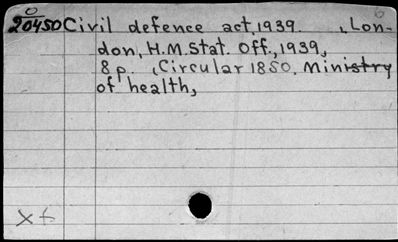 20450 Civil defence act, 1939. , Lon-
don, H.M. Stat. Off., 1939,
8 p. , (Circular 1850. Ministry
of health,
Xt